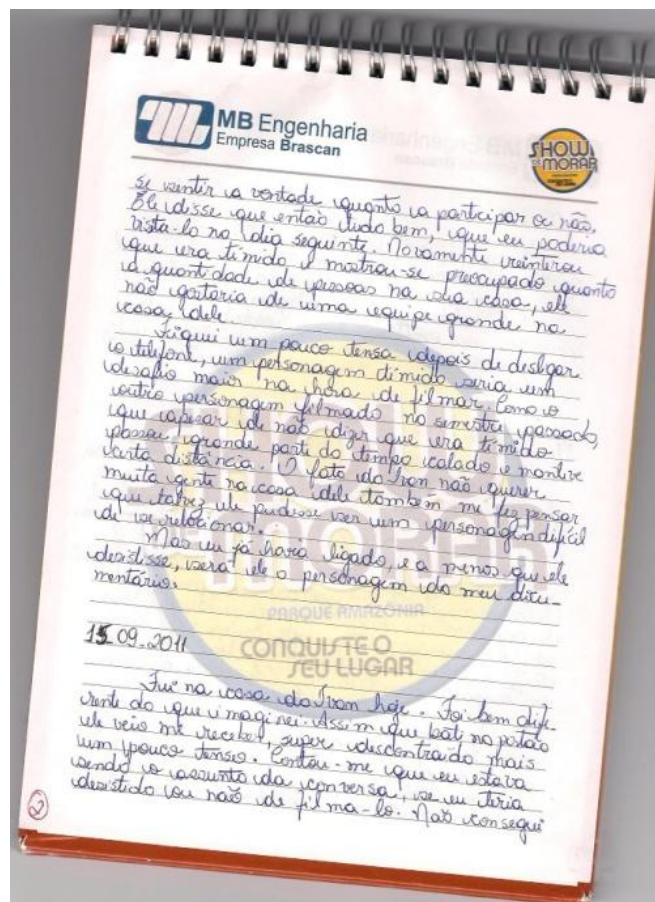 MB Engenharia
Empresa Brascan
SHOW
DE MORAR
se sentir a vontade quanto a participar ou não,
Ele disse que então tudo bem, que eu poderia
vista-lo no dia seguinte. Novamente reinterou
que era tímido e mostrou-se preocupado quanto
a quantidade de pessoas na sua casa, ele
não gostaria de uma equipe grande na
casa dele
Fiquei um pouco tensa depois de desligar
o telefone, um personagem tímido seria um
desafio maior na hora de filmar. Como o
outro personagem filmado no semestre passado,
que apesar de não dizer que era tímido
passou grande parte do tempo calado e manteve
certa distância. O fato do Ivan não querer
muita gente na casa dele também me fez pensar
que talvez ele pudesse ser um personagem difícil
de se relacionar.
Mas eu já havia ligado, e a menos que ele
desistisse, será ele o personagem do meu docu-
mentário.
SHOW
DE MORAR
PARQUE AMAZÔNIA
CONQUISTE O
SEU LUGAR
15.09.2011
Fui na casa do Ivan hoje. Foi bem dife-
rente do que imaginei. Assim que bati no portão
ele veio me receber, super descontraído mais
um pouco tenso. Contou-me que eu estava
sendo o assunto da conversa, se eu teria
desistido ou não de filma-lo. Não consegui
2